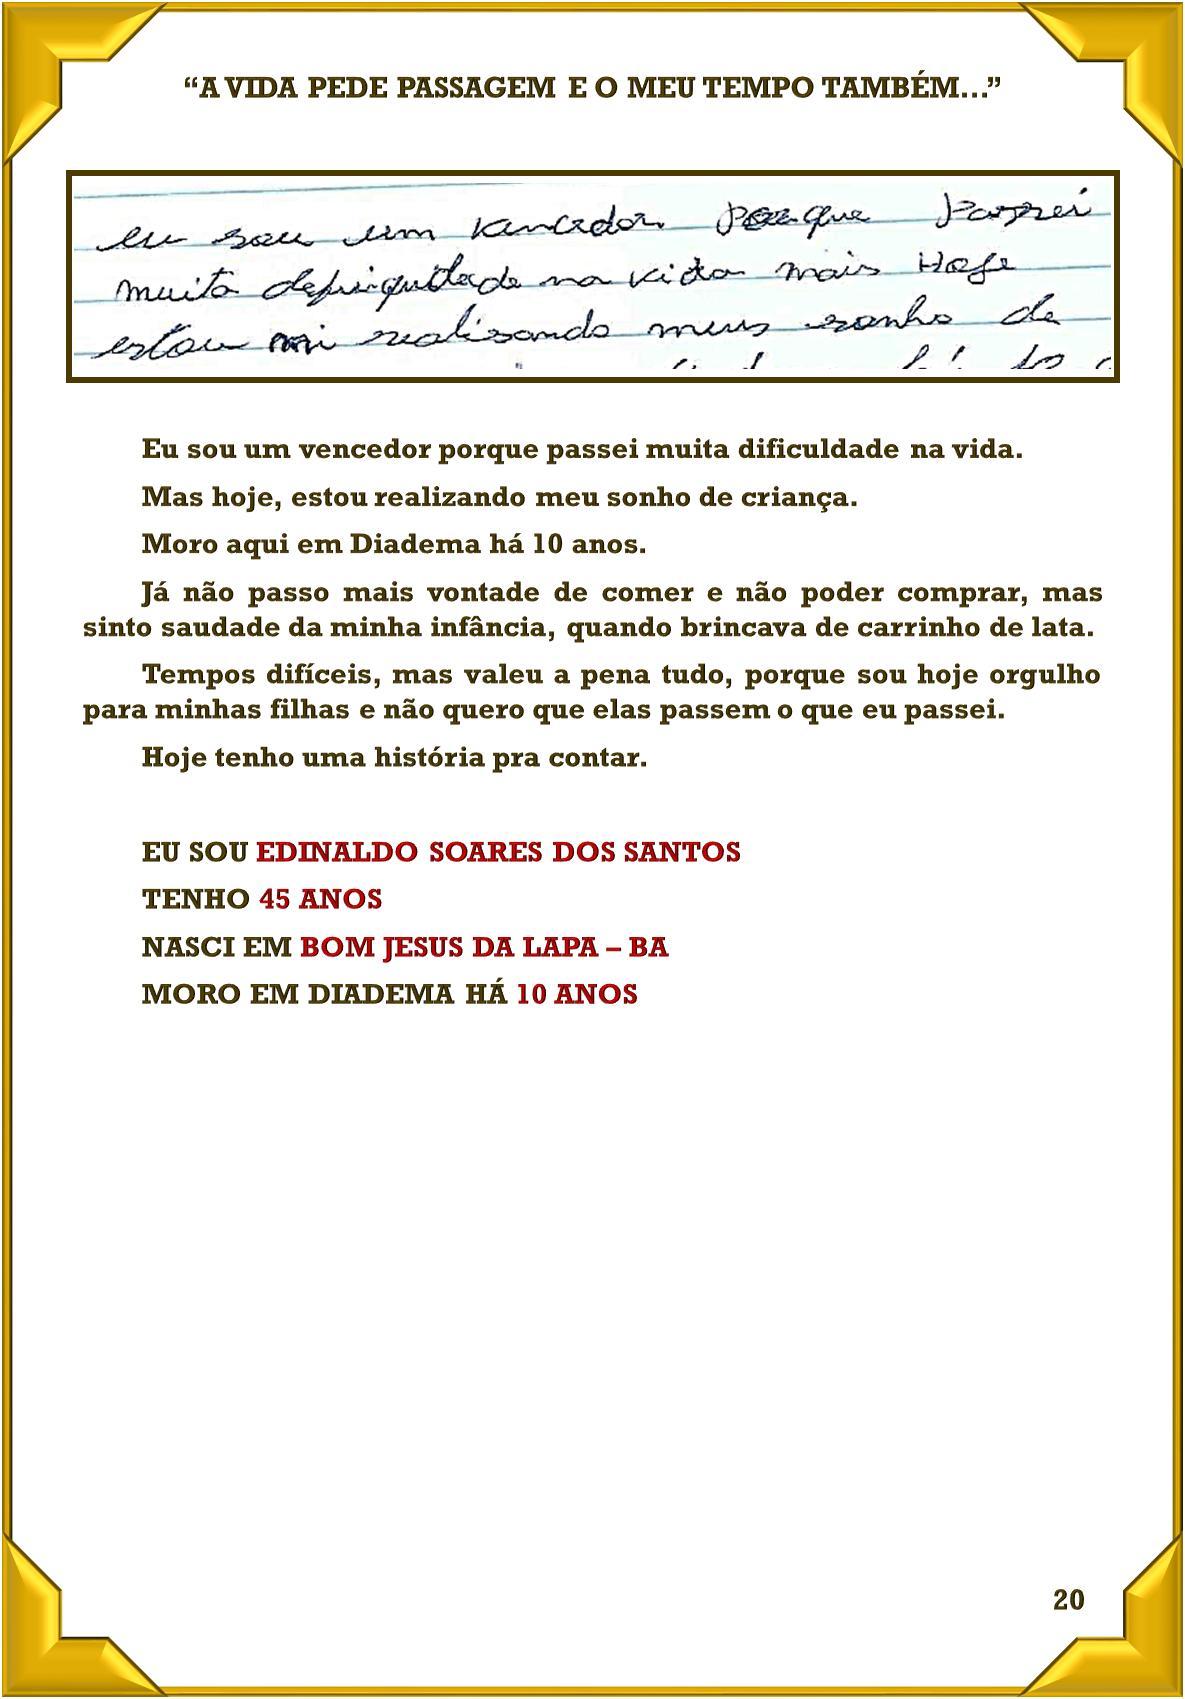 “A VIDA PEDE PASSAGEM E O MEU TEMPO TAMBÉM...”
eu sou um vencedor porque passei
muita na vida mais Hoje
estou mi realisando meus sonho de
Eu sou um vencedor porque passei muita dificuldade na vida.
Mas hoje, estou realizando meu sonho de criança.
Moro aqui em Diadema há 10 anos.
Já não passo mais vontade de comer e não poder comprar, mas
sinto saudade da minha infância, quando brincava de carrinho de lata.
Tempos difíceis, mas valeu a pena tudo, porque sou hoje orgulho
para minhas filhas e não quero que elas passem o que eu passei.
Hoje tenho uma história pra contar.
EU SOU EDINALDO SOARES DOS SANTOS
TENHO 45 ANOS
NASCI EM BOM JESUS DA LAPA – BA
MORO EM DIADEMA HÁ 10 ANOS
20